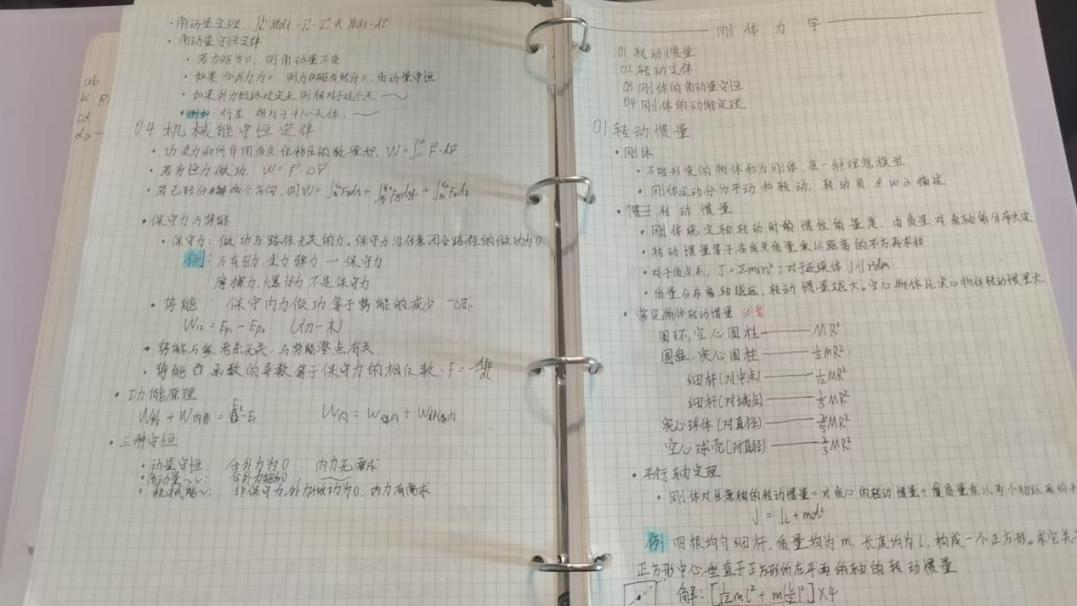 · 角动量定理
· 角动量守恒定律
· 若力矩为0, 则角动量不变
· 如果合外力为0, 则力矩必然为0, 角动量守恒
· 如果外力始终过定点, 则相对于这个点
· 例如: 行星 相对于中心天体,
04 机械能守恒定律
· 功是力和所作用质点位移的数量积. W=∫F·dr
· 若为恒力做功, W=F·Δr
· 保守力与势能
· 保守力: 做功与路径无关的力。保守力沿任意闭合路径的做功为0
例: 万有引力, 重力, 弹力 — 保守力
摩擦力, 爆炸力 不是保守力
· 势能: 保守内力做功等于势能的减少 -ΔEp
W12 = Ep1 - Ep2 (初-末)
· 势能与参考系无关, 与势能零点有关
· 势能函数的导数等于保守力的相反数.
· 功能原理
· 三种守恒
· 动量守恒: 合外力为0 内力无要求
· 角动量~: 合外力矩为0
· 机械能~: 非保守力, 外力做功为0, 内力有要求
刚体力学
01 转动惯量
02 转动定律
03 刚体的角动量守恒
04 刚体的动能定理
01 转动惯量
· 刚体
· 不能形变的物体称为刚体, 是一种理想模型
· 刚体运动分为平动和转动, 转动用 θ ω α 描述
· 转动惯量
· 刚体绕定轴转动时的惯性的量度, 由质量对点轴的分布决定
· 转动惯量等于各质点质量乘以距离的平方再求和
· 对于质点系, J=Σmiri²; 对于连续体
· 质量分布离轴越远, 转动惯量越大。空心物体比实心物体转动惯量大
· 常见物体转动惯量
圆环, 空心圆柱 —— MR²
圆盘, 实心圆柱 —— ½MR²
细杆(对中点) —— 1/12 MR²
细杆(对端点) —— 1/3 MR²
实心球体(对直径) —— 2/5 MR²
空心球壳(对直径) —— 2/3 MR²
· 平行轴定理
· 刚体对任意轴的转动惯量=对质心的转动惯量+
J = Jc + md²
例 四根均匀细杆, 质量均为m, 长度均为l, 构成一个正方形。求它关于
正方形中心, 垂直于正方形所在平面的轴的转动惯量
解: [1/12 ml² + m(l/2)²]×4